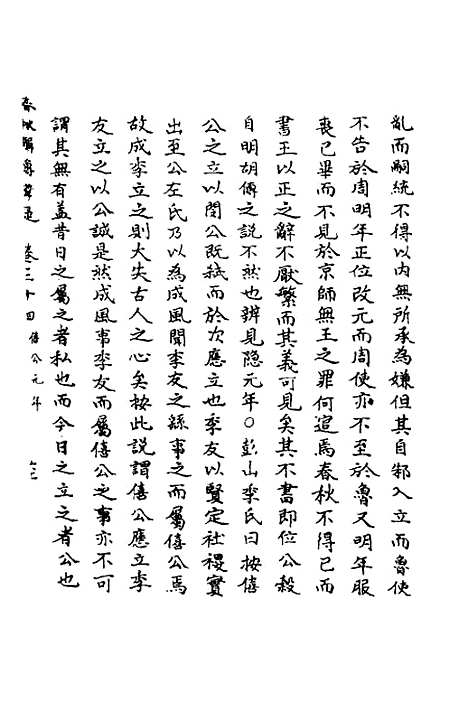 亂而嗣統不得以内無所承為嫌但其自邾入立而魯使
不告於周明年正位改元而周使亦不至於魯又明年服
喪已畢而不見於京師無王之罪何逭焉春秋不得已而
書王以正之辭不厭繁而其義可見矣其不書即位公穀
自明胡傳之說不然也辨見隐元年○彭山季氏曰按僖
公之立以閔公既弒而於次應立也季友以賢定社稷實
出至公左氏乃以為成風聞季友之繇事之而屬僖公焉
故成季立之則大失古人之心矣按此說謂僖公應立季
友立之以公誠是然成風事季友而屬僖公之事亦不可
謂其無有蓋昔日之屬之者私也而今日之立之者公也
春秋 卷三十四 僖公元年